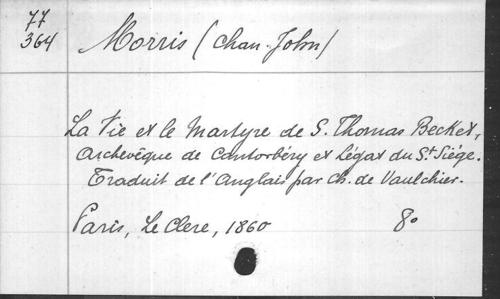 77
364
Morris (Chan. John)
La Vie et le Martyre de S. Thomas Becket,
Archevêque de Cantorbéry et Légat du St. Siége.
Traduit de l'Anglais par Ch. de Vaulchier.
Paris, Le Clere, 1860 8o